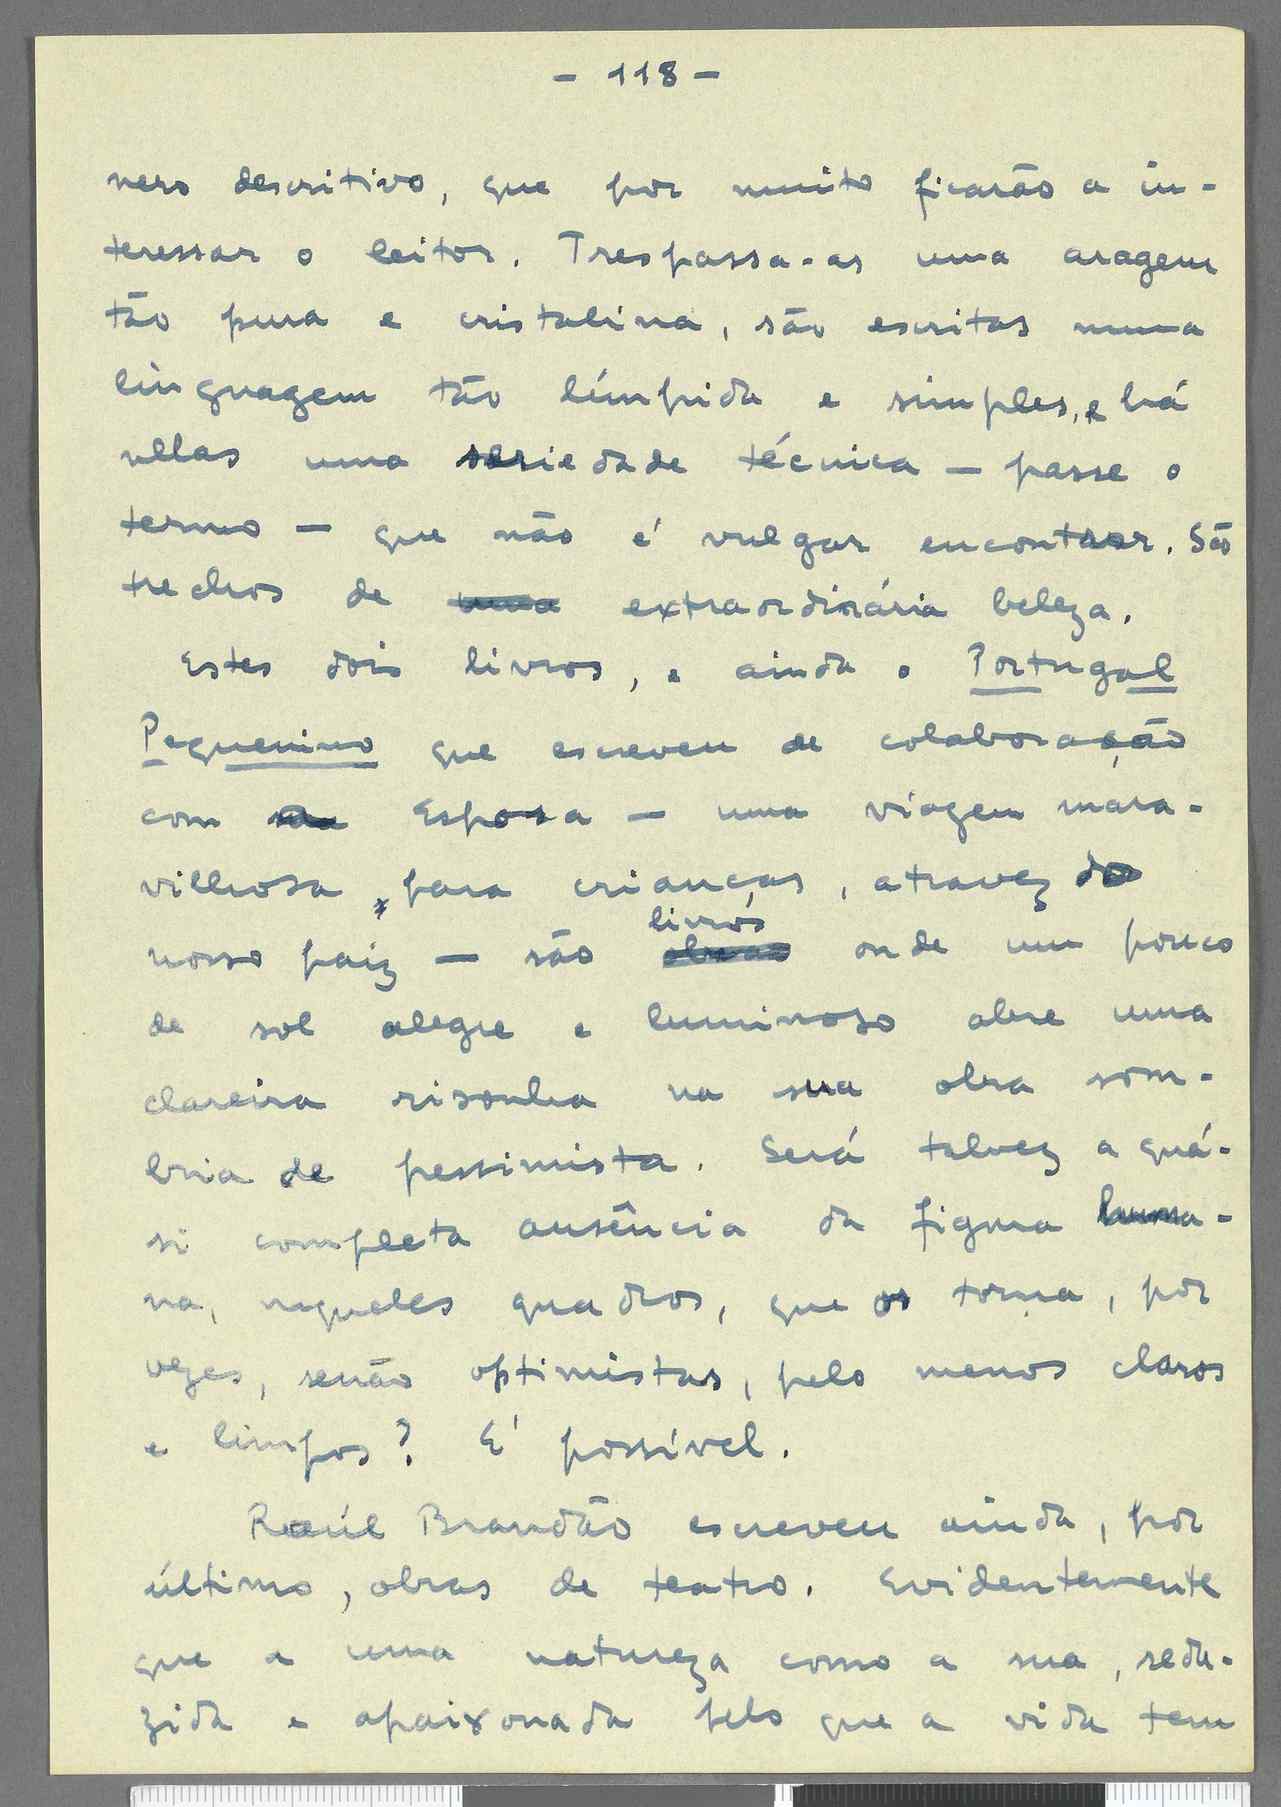 - 118 -
nero descritivo, que por muito ficarão a in-
teressar o leitor. Trespassa-as uma aragem
tão pura e cristalina, são escritas numa
linguagem tão límpida e simples, e há
nellas uma seriedade técnica — passe o
termo — que não é vulgar encontrar. São
trechos de uma extraordinária beleza.
Estes dois livros, e ainda o Portugal
Pequenino que escreveu de colaboração
com sua Esposa — uma viagem mara-
vilhosa, para crianças, atravez do
livros
nosso paiz — são obras onde um pouco
de sol alegre e luminoso abre uma
clareira risonha na sua obra som-
bria de pessimista. Será talvez a quá-
si completa ausência da figura huma-
na, naqueles quadros, que os torna, por
vezes, senão optimistas, pelo menos claros
e limpos? É possível.
Raúl Brandão escreveu ainda, por
último, obras de teatro. Evidentemente
que a uma natureza como a sua, sedu-
zida e apaixonada pelo que a vida tem